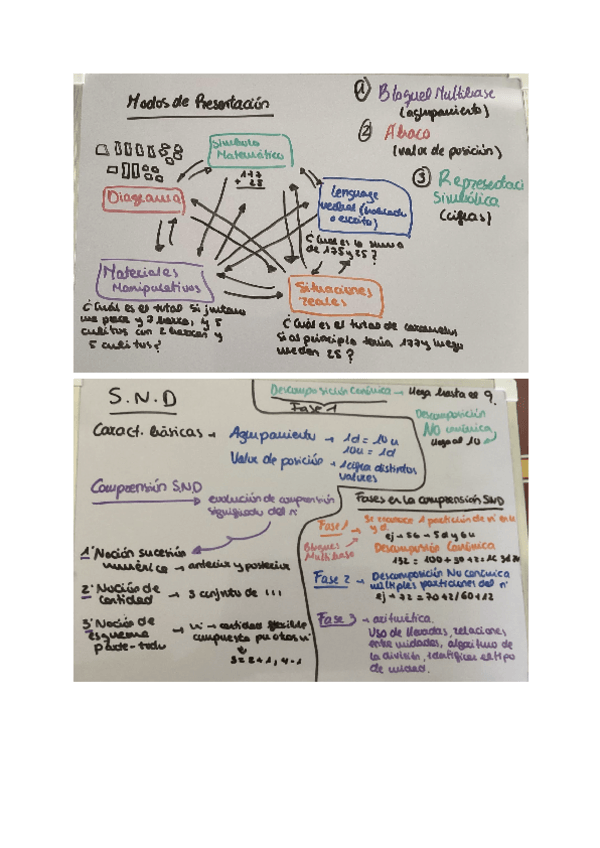 Modos de Presentación
① Bloques Multibase
(agrupamiento)
② Ábaco
(valor de posición)
③ Representaci
Simbólica
(cifras)
Símbolo
Matemático
177
+ 25
Lenguaje
verbal (hablado
o escrito)
¿Cuál es la suma
de 175 y 25?
Diagrama
Materiales
Manipulativos
¿Cuál es el total si juntamos
una placa y 7 barras, y 5
cubitos con 2 barras y
5 cubitos?
Situaciones
reales
¿Cuál es el total de caramelos
si al principio tenía 177 y luego
me dan 25?
S.N.D
Caract. básicas → Agrupamiento → 1d = 10u
10u = 1d
Valor de posición → 1 cifra distintos
valores
Descomposición Canónica → llega hasta el 9.
Fase 1
Descomposición
No canónica
llega al 10
Comprensión S.N.D
evolución de comprensión
significado del nº
1º Noción sucesión
numérica → anterior y posterior
2º Noción de
cantidad → 3 conjunto de 111
3º Noción de
Esquema
parte-todo
→ nº → cantidad flexible
compuesta por otros nº
3 = 2 + 1, 4 - 1
Fases en la comprensión SND
Fase 1 → Se reconoce 1 partición de nº en u
y d.
ej → 56 → 5d y 6u
Bloques
Multibase
Descomposición Canónica
Fase 2 → Descomposición No canónica
múltiples particiones del nº
ej → 72 = 70+2/60+12
Fase 3 → aritmética.
Uso de llevadas, relaciones
entre unidades, algoritmo de
la división, identificar el tipo
de unidad.